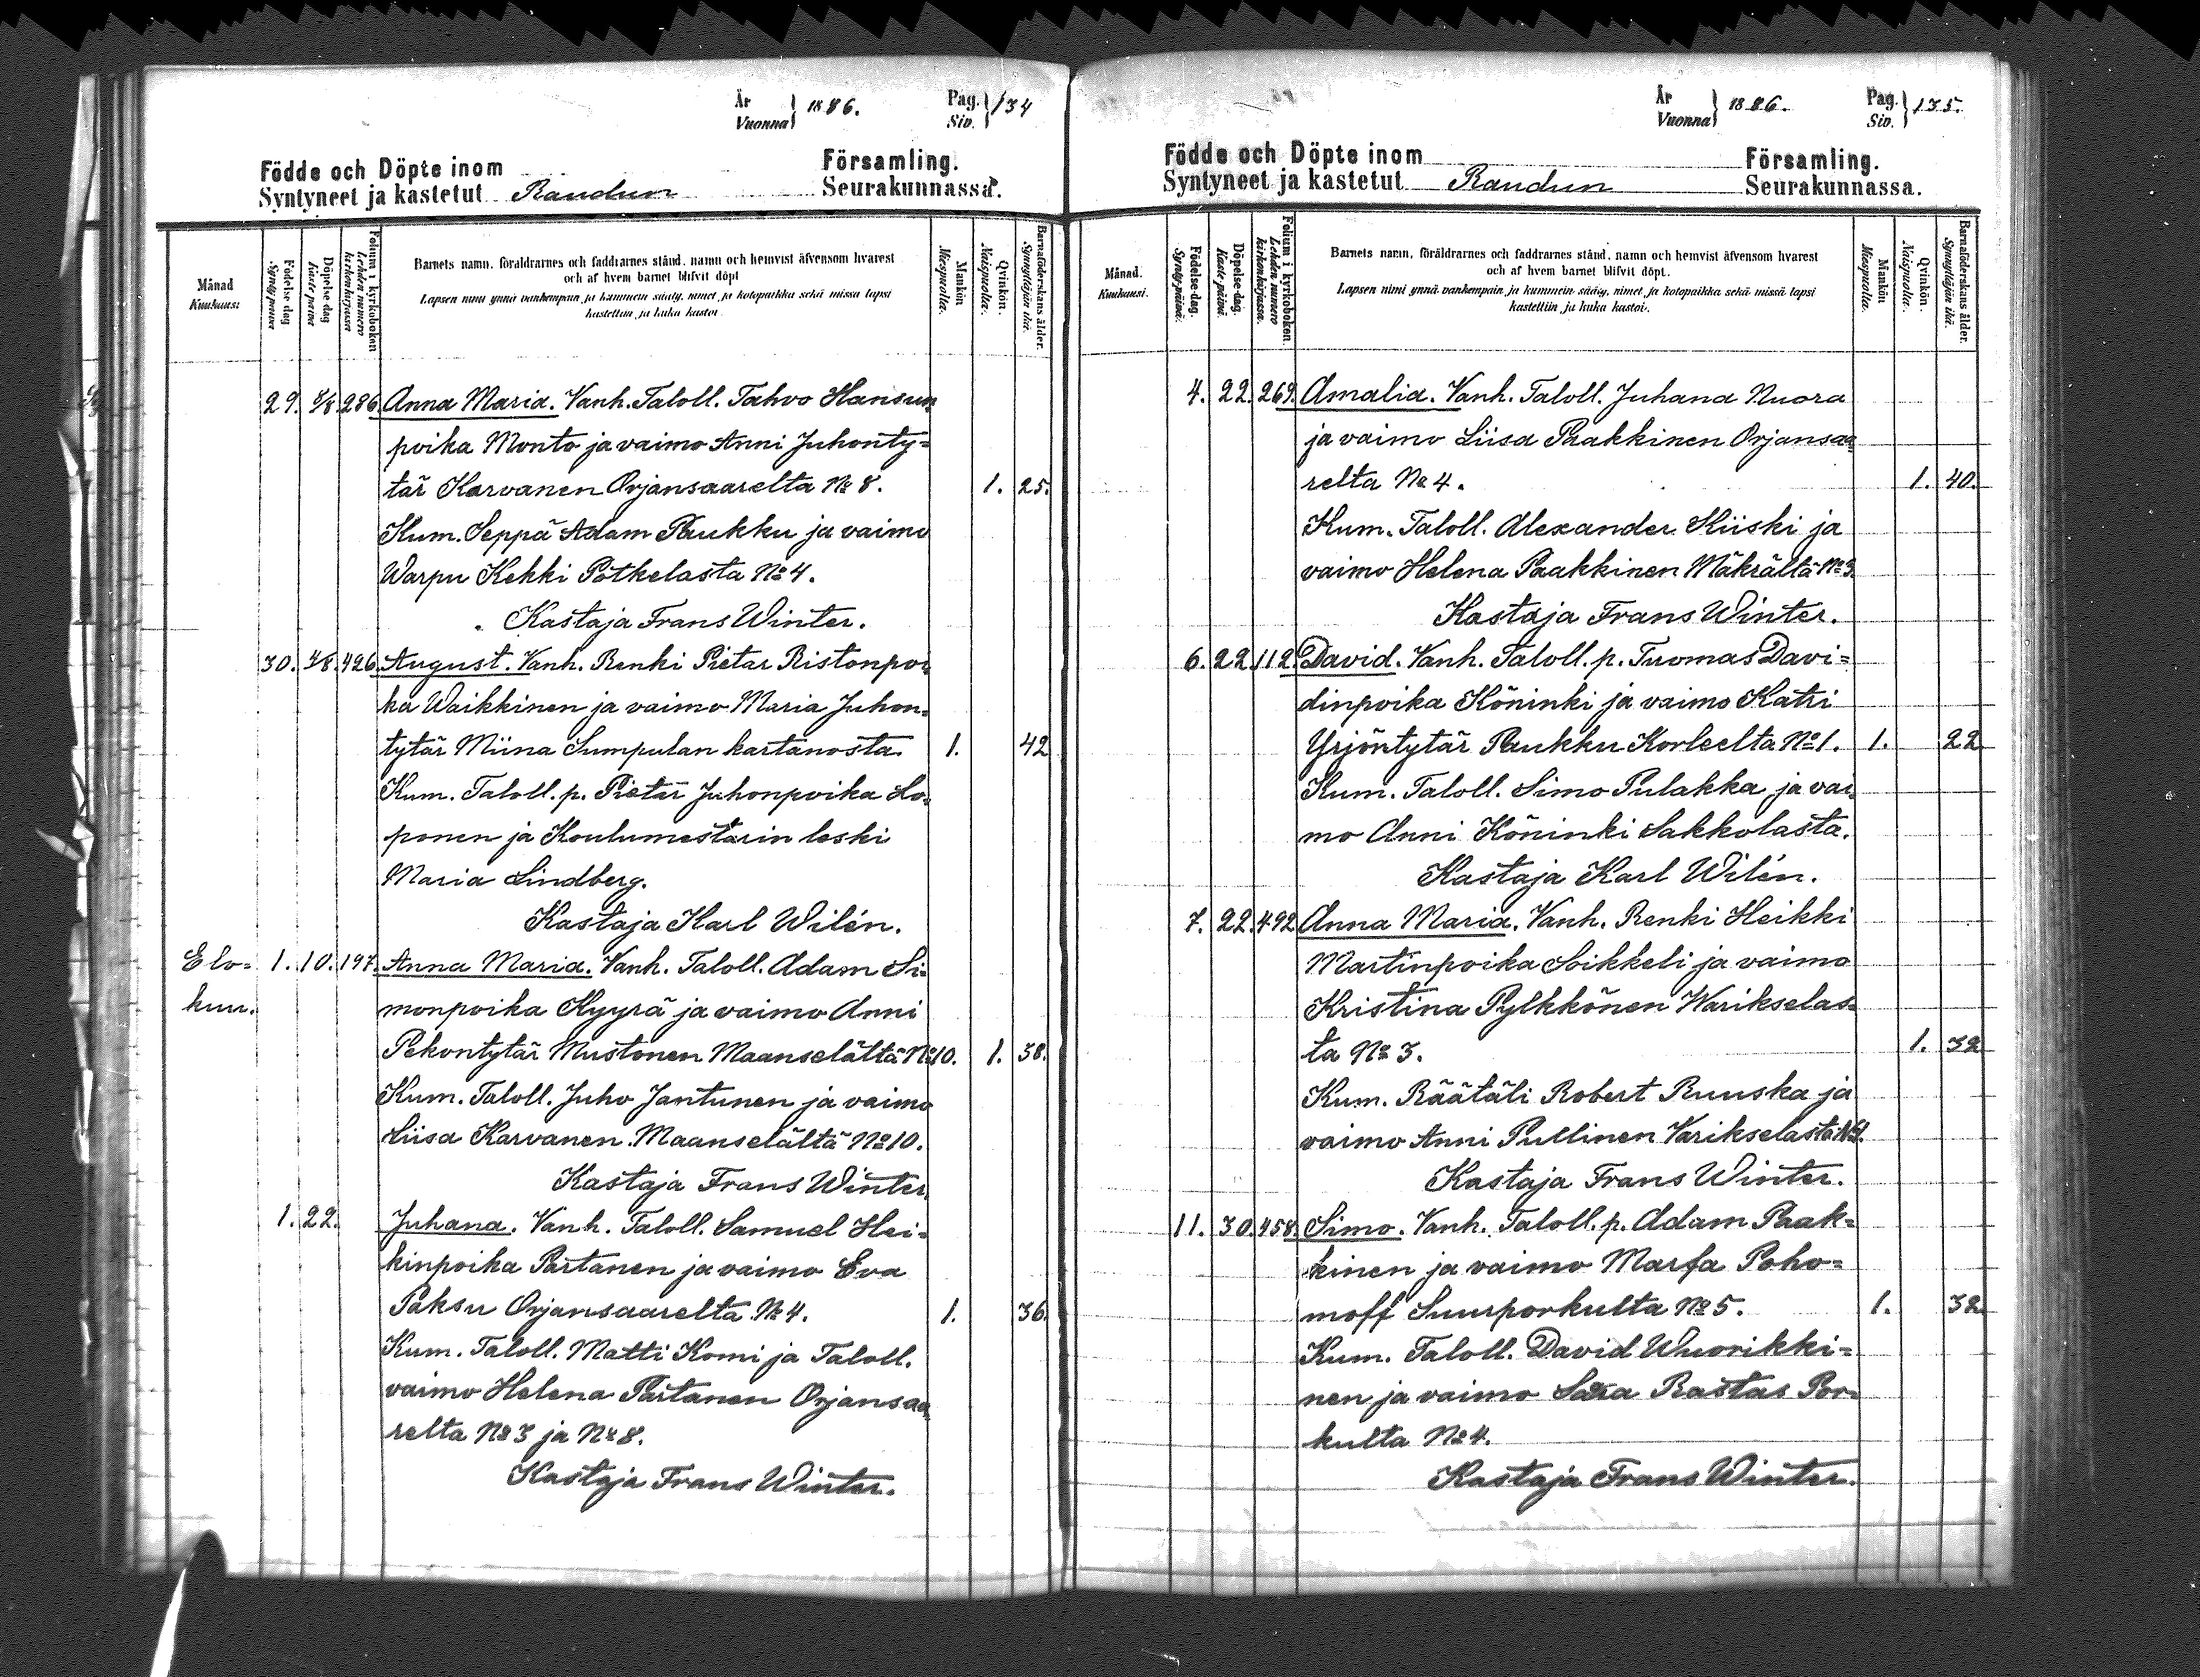 År Vuonna } 1886. Pag. Siv. } 134
Födde och Döpte inom Församling.
Syntyneet ja kastetut Raudun Seurakunnassa.
Månad Kuukausi
Födelse dag Syntypäivä
Döpelse dag Kastepäivä
Folium i kyrkoboken Lehden numero kirkonkirjassa
Barnets namn, föräldrarnes och faddrarnes stånd, namn och hemvist äfvensom hvarest
och af hvem barnet blifvit döpt
Lapsen nimi ynnä vanhempain ja kummein sääty, nimet ja kotopaikka sekä missä lapsi
kastettiin ja kuka kastoi
Mankön Miespuolta.
Qvinkön. Naispuolta.
Barnaföderskans ålder. Synnyttäjän ikä.
29. 8/8 286 Anna Maria. Vanh. Taloll. Tahvo Hansun
poika Monto ja vaimo Anni Juhonty=
tär Karvanen Orjansaarelta No 8. 1. 25.
Kum. Seppä Adam Paukku ja vaimo
Warpu Kekki Pötkelasta No 4.
Kastaja Frans Winter.
30. /8. 426 August. Vanh. Renki Pietar Ristonpoi
ka Waikkinen ja vaimo Maria Juhon=
tytär Miina Sumpulan kartanosta. 1. 42
Kum. Taloll. p. Pietar Juhonpoika Lo=
ponen ja Koulumestarin leski
Maria Lindberg.
Kastaja Karl Wilén.
Elo= 1. 10. 197. Anna Maria. Vanh. Taloll. Adam Si=
kuu. monpoika Kyyrä ja vaimo Anni
Pekontytär Mustonen Maanselältä No 10. 1. 38.
Kum. Taloll. Juho Jantunen ja vaimo
Liisa Karvanen Maanselältä No 10.
Kastaja Frans Winter.
1. 22. Juhana. Vanh. Taloll. Samuel Hei=
kinpoika Partanen ja vaimo Eva
Paksu Orjansaarelta No 4. 1. 36.
Kum. Taloll. Matti Komi ja Taloll.
vaimo Helena Partanen Orjansaa
relta No 3 ja No 8.
Kastaja Frans Winter.
År Vuonna } 1886. Pag. Siv. } 135.
Födde och Döpte inom Församling.
Syntyneet ja kastetut Raudun Seurakunnassa.
Månad. Kuukausi.
Födelse-dag. Syntypäivä.
Döpelse-dag. Kastepäivä.
Folium i kyrkoboken. Lehden numero kirkonkirjassa.
Barnets namn, föräldrarnes och faddrarnes stånd, namn och hemvist äfvensom hvarest
och af hvem barnet blifvit döpt.
Lapsen nimi ynnä vanhempain ja kummein sääty, nimet ja kotopaikka sekä missä lapsi
kastettiin ja kuka kastoi.
Mankön Miespuolta.
Qvinkön. Naispuolta.
Barnaföderskans ålder. Synnyttäjän ikä.
4. 22. 269. Amalia. Vanh. Taloll. Juhana Nuora
ja vaimo Liisa Paakkinen Orjansaa
relta No 4. 1. 40.
Kum. Taloll. Alexander Kiiski ja
vaimo Helena Paakkinen Mäkrältä No 3.
Kastaja Frans Winter.
6. 22. 112. David. Vanh. Taloll. p. Tuomas Davi=
dinpoika Köninki ja vaimo Katri
Yrjöntytär Paukku Korleelta No 1. 1. 22
Kum. Taloll. Simo Pulakka ja vai
mo Anni Köninki Sakkolasta.
Kastaja Karl Wilén.
7. 22. 492 Anna Maria. Vanh. Renki Heikki
Martinpoika Soikkeli ja vaimo
Kristina Pylkkönen Warikselas=
ta No 3. 1. 32
Kum. Räätäli Robert Ruuska ja
vaimo Anni Pullinen Varikselasta No 4.
Kastaja Frans Winter.
11. 30. 458. Simo. Vanh. Taloll. p. Adam Paak=
kinen ja vaimo Marfa Poho=
moff Suurporkulta No 5. 1. 32
Kum. Taloll. David Wuorikki=
nen ja vaimo Sara Rastas Por=
kulta No 4.
Kastaja Frans Winter.